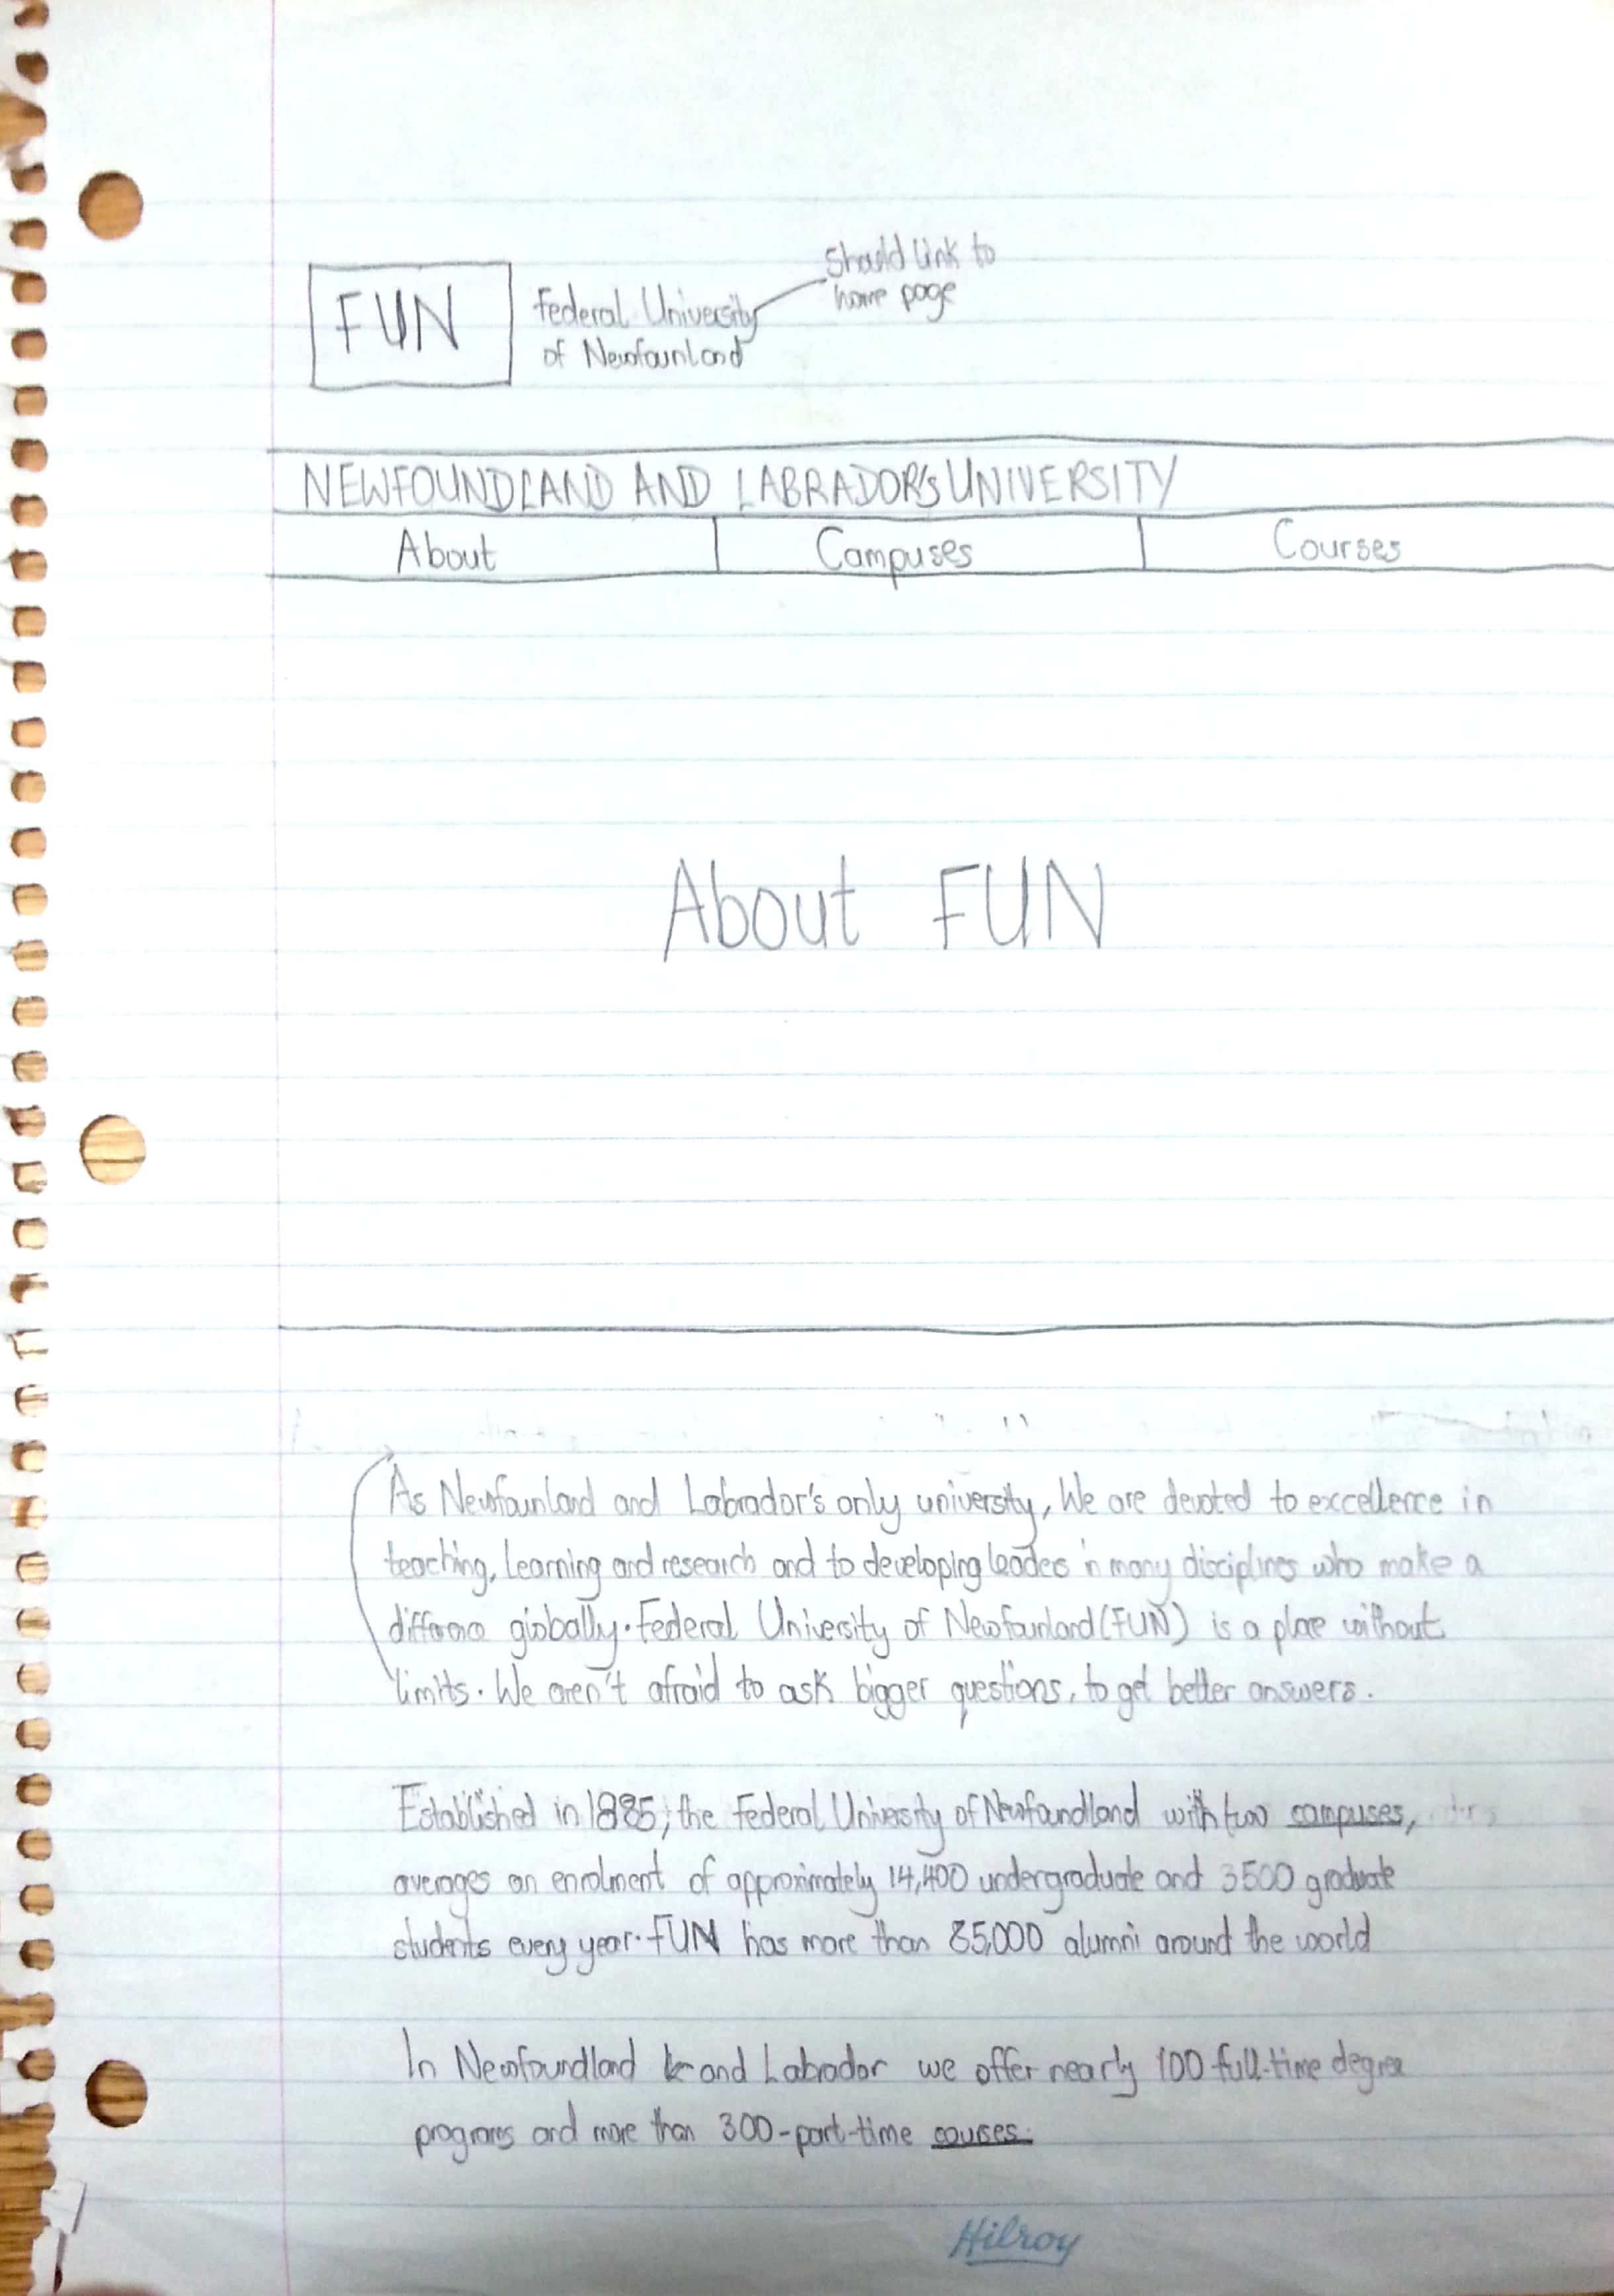 should link to
home page
FUN
Federal University
of Newfounland
NEWFOUNDLAND AND LABRADOR'S UNIVERSITY
About
Campuses
Courses
About FUN
As Newfounland and Labrador's only university, We are devoted to excellence in
teaching, learning and research and to developing leaders in many disciplines who make a
difference globally. Federal University of Newfounland (FUN) is a place without
limits. We aren't afraid to ask bigger questions, to get better answers.
Established in 1885, the Federal University of Newfoundland with two campuses,
averages an enrolment of approximately 14,400 undergraduate and 3500 graduate
students every year. FUN has more than 85,000 alumni around the world
In Newfoundland and Labrador we offer nearly 100 full-time degree
programs and more than 300-part-time courses.
Hilroy